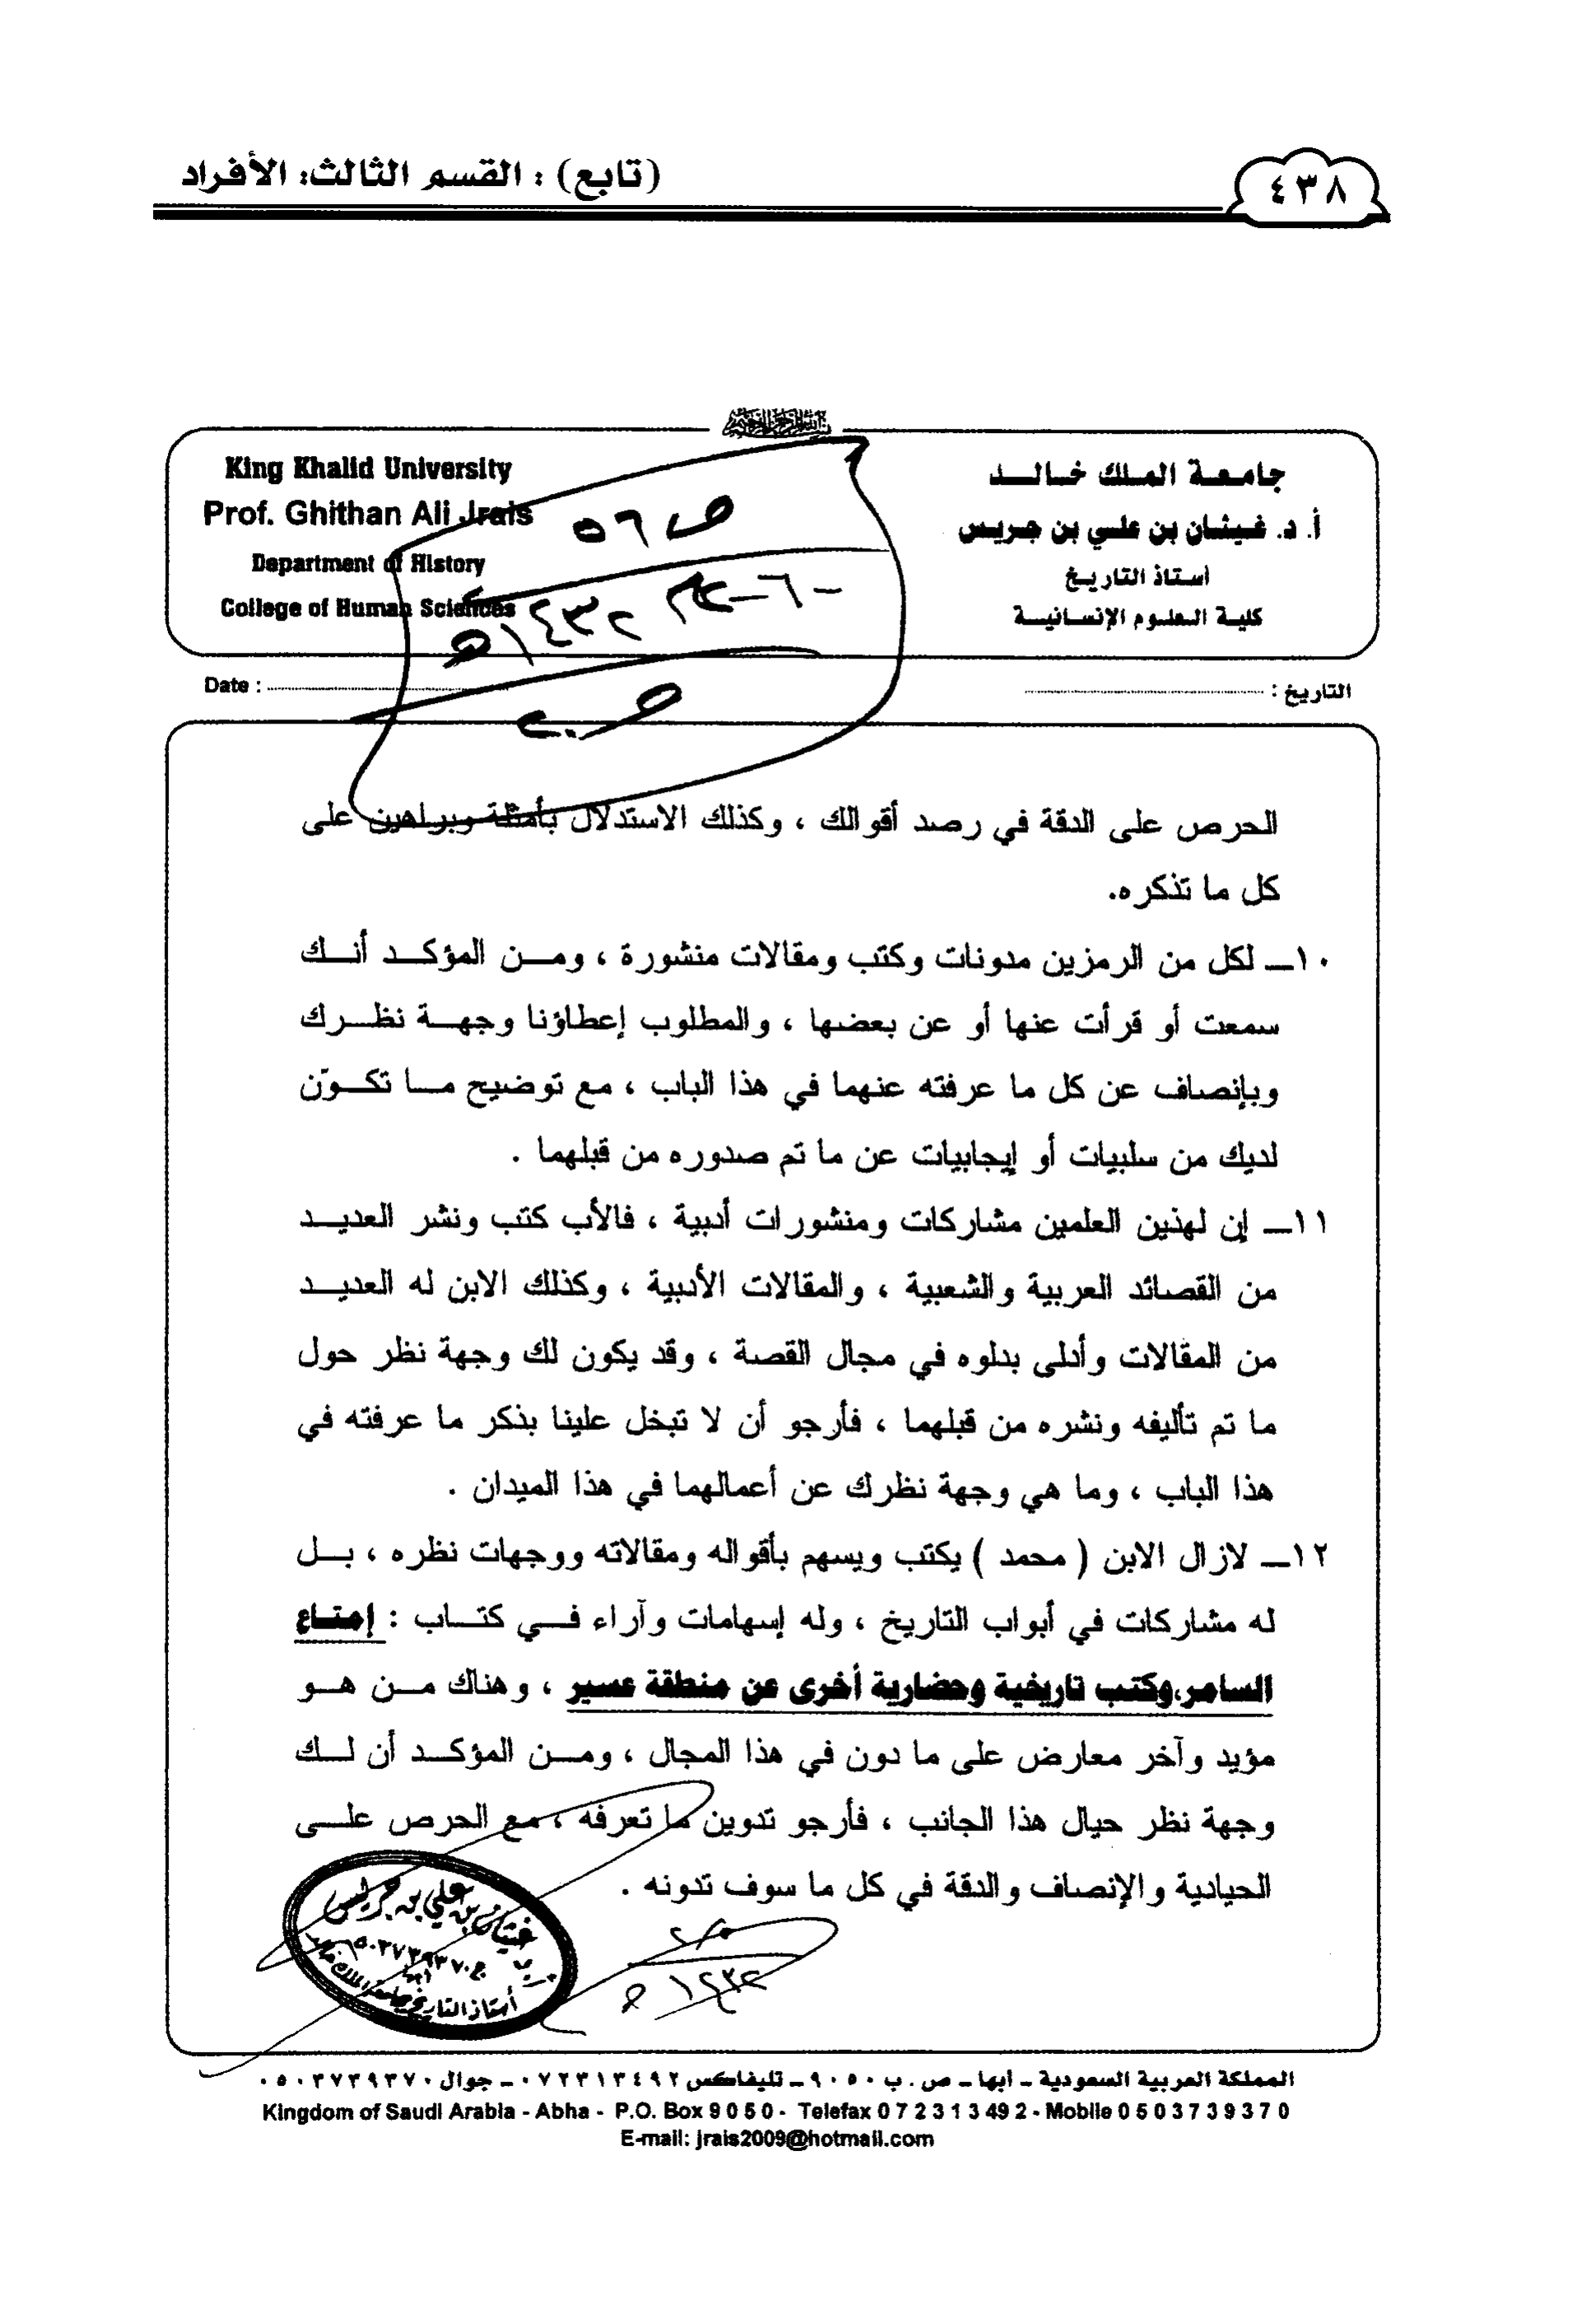 ٤٣٨
(تابع) : القسم الثالث: الأفراد
بسم الله الرحمن الرحيم
جامعة الملك خالد
أ. د. غيثان بن علي بن جريس
أستاذ التاريخ
كلية العلوم الإنسانية
King Khalid University
Prof. Ghithan Ali Jrais
Department of History
College of Human Sciences
ص ٥٦
١٤٣٢هـ
التاريخ :
Date :
الحرص على الدقة في رصد أقوالك ، وكذلك الاستدلال بأمثلة وبراهين على
كل ما تذكره.
١٠ـ لكل من الرمزين مدونات وكتب ومقالات منشورة ، ومن المؤكد أنك
سمعت أو قرأت عنها أو عن بعضها ، والمطلوب إعطاؤنا وجهة نظرك
وبإنصاف عن كل ما عرفته عنهما في هذا الباب ، مع توضيح ما تكوّن
لديك من سلبيات أو إيجابيات عن ما تم صدوره من قبلهما .
١١ـ إن لهذين العلمين مشاركات ومنشورات أدبية ، فالأب كتب ونشر العديد
من القصائد العربية والشعبية ، والمقالات الأدبية ، وكذلك الابن له العديد
من المقالات وأدلى بدلوه في مجال القصة ، وقد يكون لك وجهة نظر حول
ما تم تأليفه ونشره من قبلهما ، فأرجو أن لا تبخل علينا بذكر ما عرفته في
هذا الباب ، وما هي وجهة نظرك عن أعمالهما في هذا الميدان .
١٢ـ لازال الابن ( محمد ) يكتب ويسهم بأقواله ومقالاته ووجهات نظره ، بل
له مشاركات في أبواب التاريخ ، وله إسهامات وآراء في كتاب : إمتاع
السامر،وكتب تاريخية وحضارية أخرى عن منطقة عسير ، وهناك من هو
مؤيد وآخر معارض على ما دون في هذا المجال ، ومن المؤكد أن لك
وجهة نظر حيال هذا الجانب ، فأرجو تدوين ما تعرفه ، مع الحرص على
الحيادية والإنصاف والدقة في كل ما سوف تدونه .
غيثان بن علي بن جريس
ج.٠٥٠٣٧٣٩٣٧٠
أستاذ التاريخ بجامعة الملك خالد
١٤٣٢هـ
المملكة العربية السعودية ـ أبها ـ ص . ب ٩٠٥٠ ـ تليفاكس ٠٧٢٣١٣٤٩٢ ـ جوال ٠٥٠٣٧٣٩٣٧٠
Kingdom of Saudi Arabia - Abha - P.O. Box 9 0 5 0 - Telefax 0 7 2 3 1 3 49 2 - Mobile 0 5 0 3 7 3 9 3 7 0
E-mail: jrais2009@hotmail.com